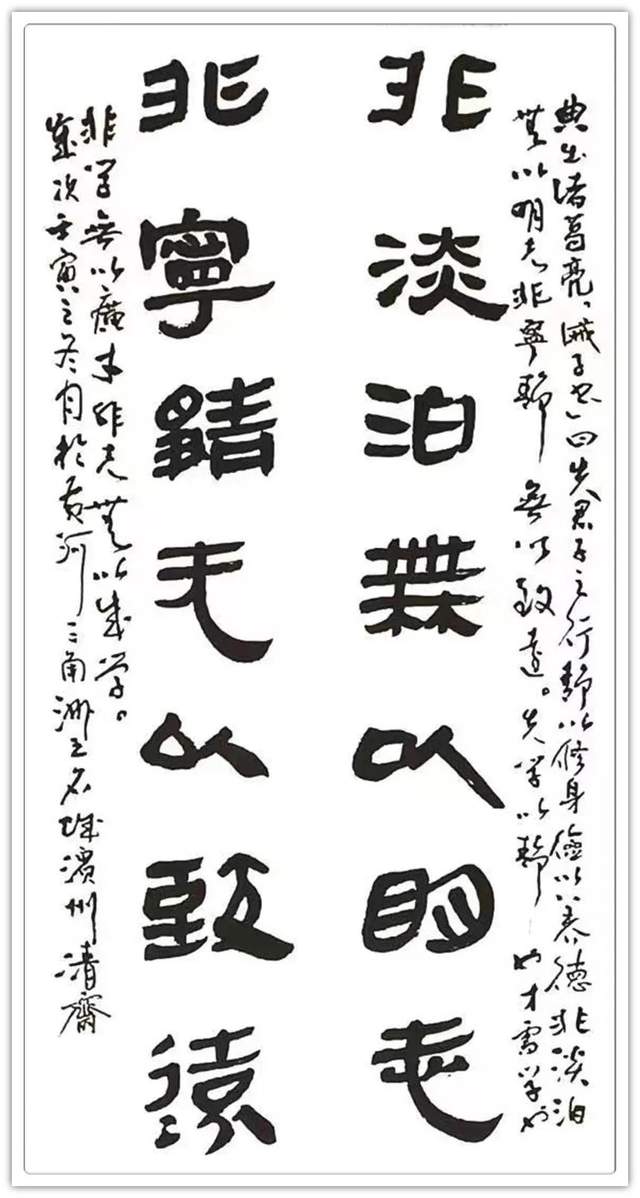 典出诸葛亮「诫子书」曰夫君子之行靜以修身儉以养德非淡泊
無以明志非寧靜無以致遠。夫学以靜也才需学也
非淡泊無以明志
非寧靜无以致遠
非学無以廣才非志無以成学。
歲次壬寅之冬月於黄河三角洲之名城濱州清齋